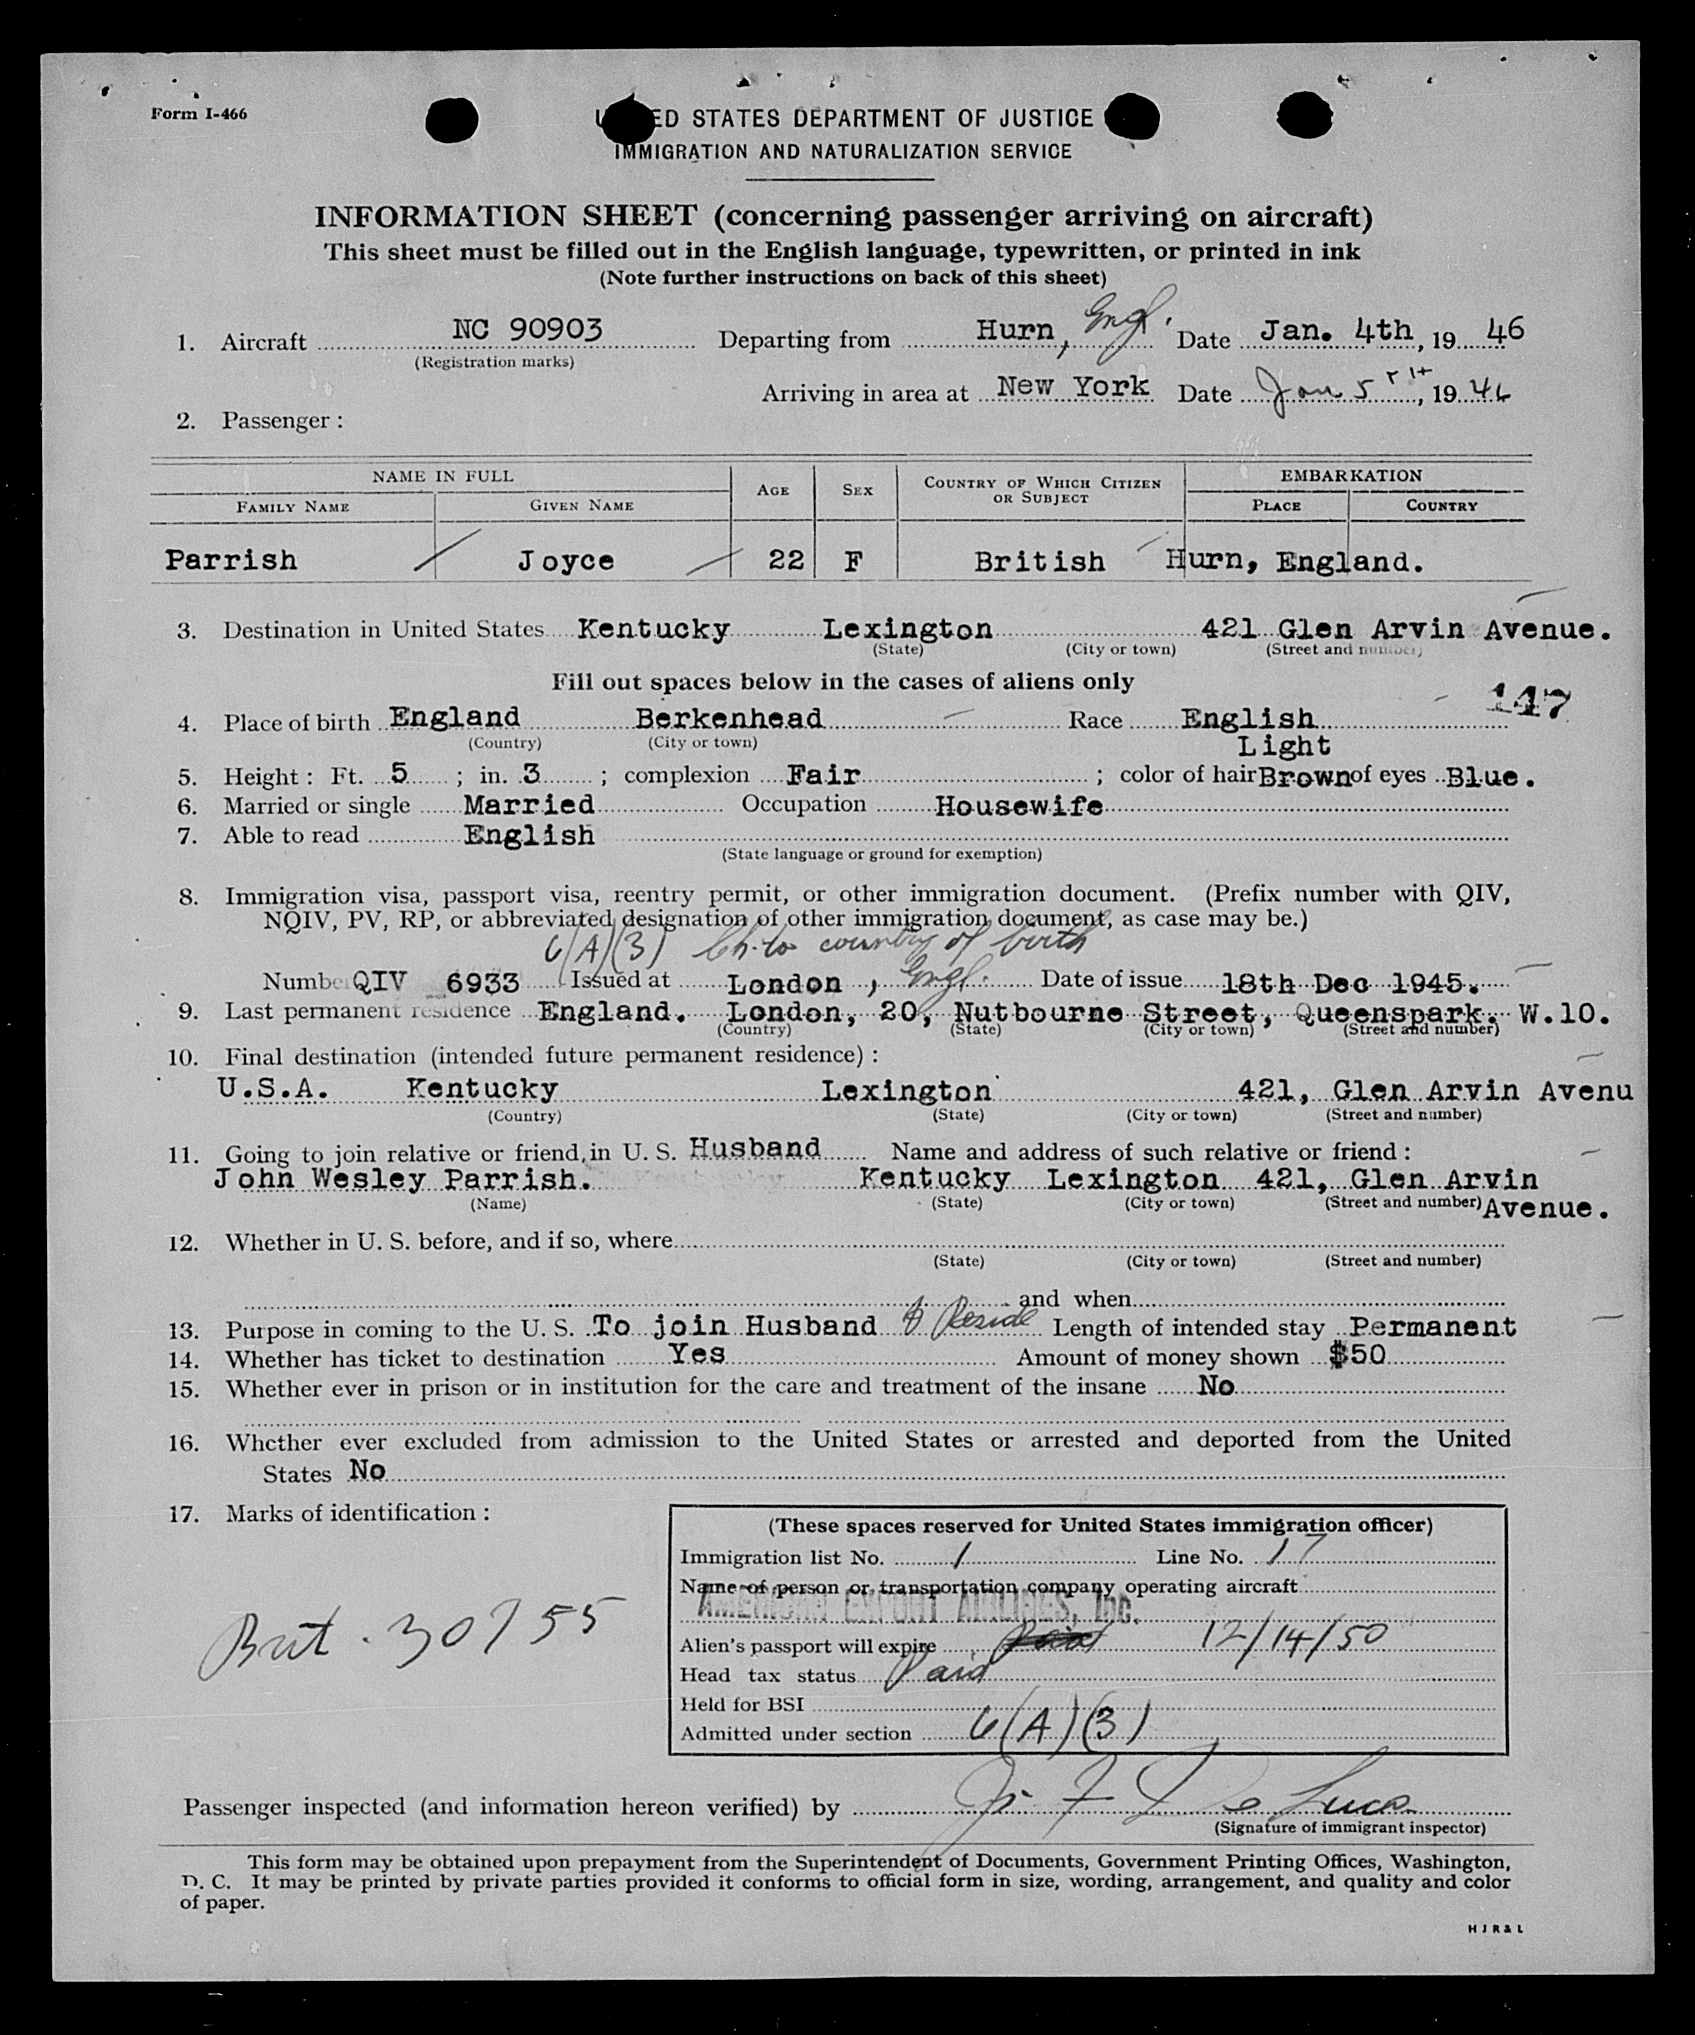 Form I-466
UNITED STATES DEPARTMENT OF JUSTICE
IMMIGRATION AND NATURALIZATION SERVICE
INFORMATION SHEET (concerning passenger arriving on aircraft)
This sheet must be filled out in the English language, typewritten, or printed in ink
(Note further instructions on back of this sheet)
1. Aircraft NC 90903 Departing from Hurn, Engl. Date Jan. 4th, 19 46
(Registration marks)
Arriving in area at New York Date Jan 5, 19 46
2. Passenger:
NAME IN FULL EMBARKATION
FAMILY NAME GIVEN NAME AGE SEX COUNTRY OF WHICH CITIZEN OR SUBJECT PLACE COUNTRY
Parrish Joyce 22 F British Hurn, England.
3. Destination in United States Kentucky Lexington 421 Glen Arvin Avenue.
(State) (City or town) (Street and number)
Fill out spaces below in the cases of aliens only
147
4. Place of birth England Berkenhead Race English
(Country) (City or town) Light
5. Height: Ft. 5; in. 3; complexion Fair; color of hair Brown of eyes Blue.
6. Married or single Married Occupation Housewife
7. Able to read English
(State language or ground for exemption)
8. Immigration visa, passport visa, reentry permit, or other immigration document. (Prefix number with QIV,
NQIV, PV, RP, or abbreviated designation of other immigration document, as case may be.)
6(A)(3) country of birth
Number QIV 6933 Issued at London, Engl. Date of issue 18th Dec 1945.
9. Last permanent residence England. London, 20, Nutbourne Street, Queenspark. W.10.
(Country) (State) (City or town) (Street and number)
10. Final destination (intended future permanent residence):
U.S.A. Kentucky Lexington 421, Glen Arvin Avenu
(Country) (State) (City or town) (Street and number)
11. Going to join relative or friend in U. S. Husband Name and address of such relative or friend:
John Wesley Parrish. Kentucky Lexington 421, Glen Arvin
(Name) (State) (City or town) (Street and number) Avenue.
12. Whether in U. S. before, and if so, where
(State) (City or town) (Street and number)
and when
13. Purpose in coming to the U. S. To join Husband & Reside Length of intended stay Permanent
14. Whether has ticket to destination Yes Amount of money shown $50
15. Whether ever in prison or in institution for the care and treatment of the insane No
16. Whether ever excluded from admission to the United States or arrested and deported from the United
States No
17. Marks of identification:
Brit. 30755
(These spaces reserved for United States immigration officer)
Immigration list No. 1 Line No. 17
Name of person or transportation company operating aircraft
AMERICAN EXPORT AIRLINES, Inc.
Alien's passport will expire 12/14/50
Head tax status Paid
Held for BSI
Admitted under section 6(A)(3)
Passenger inspected (and information hereon verified) by De Luca
(Signature of immigrant inspector)
This form may be obtained upon prepayment from the Superintendent of Documents, Government Printing Offices, Washington,
D. C. It may be printed by private parties provided it conforms to official form in size, wording, arrangement, and quality and color
of paper.
H J R & L